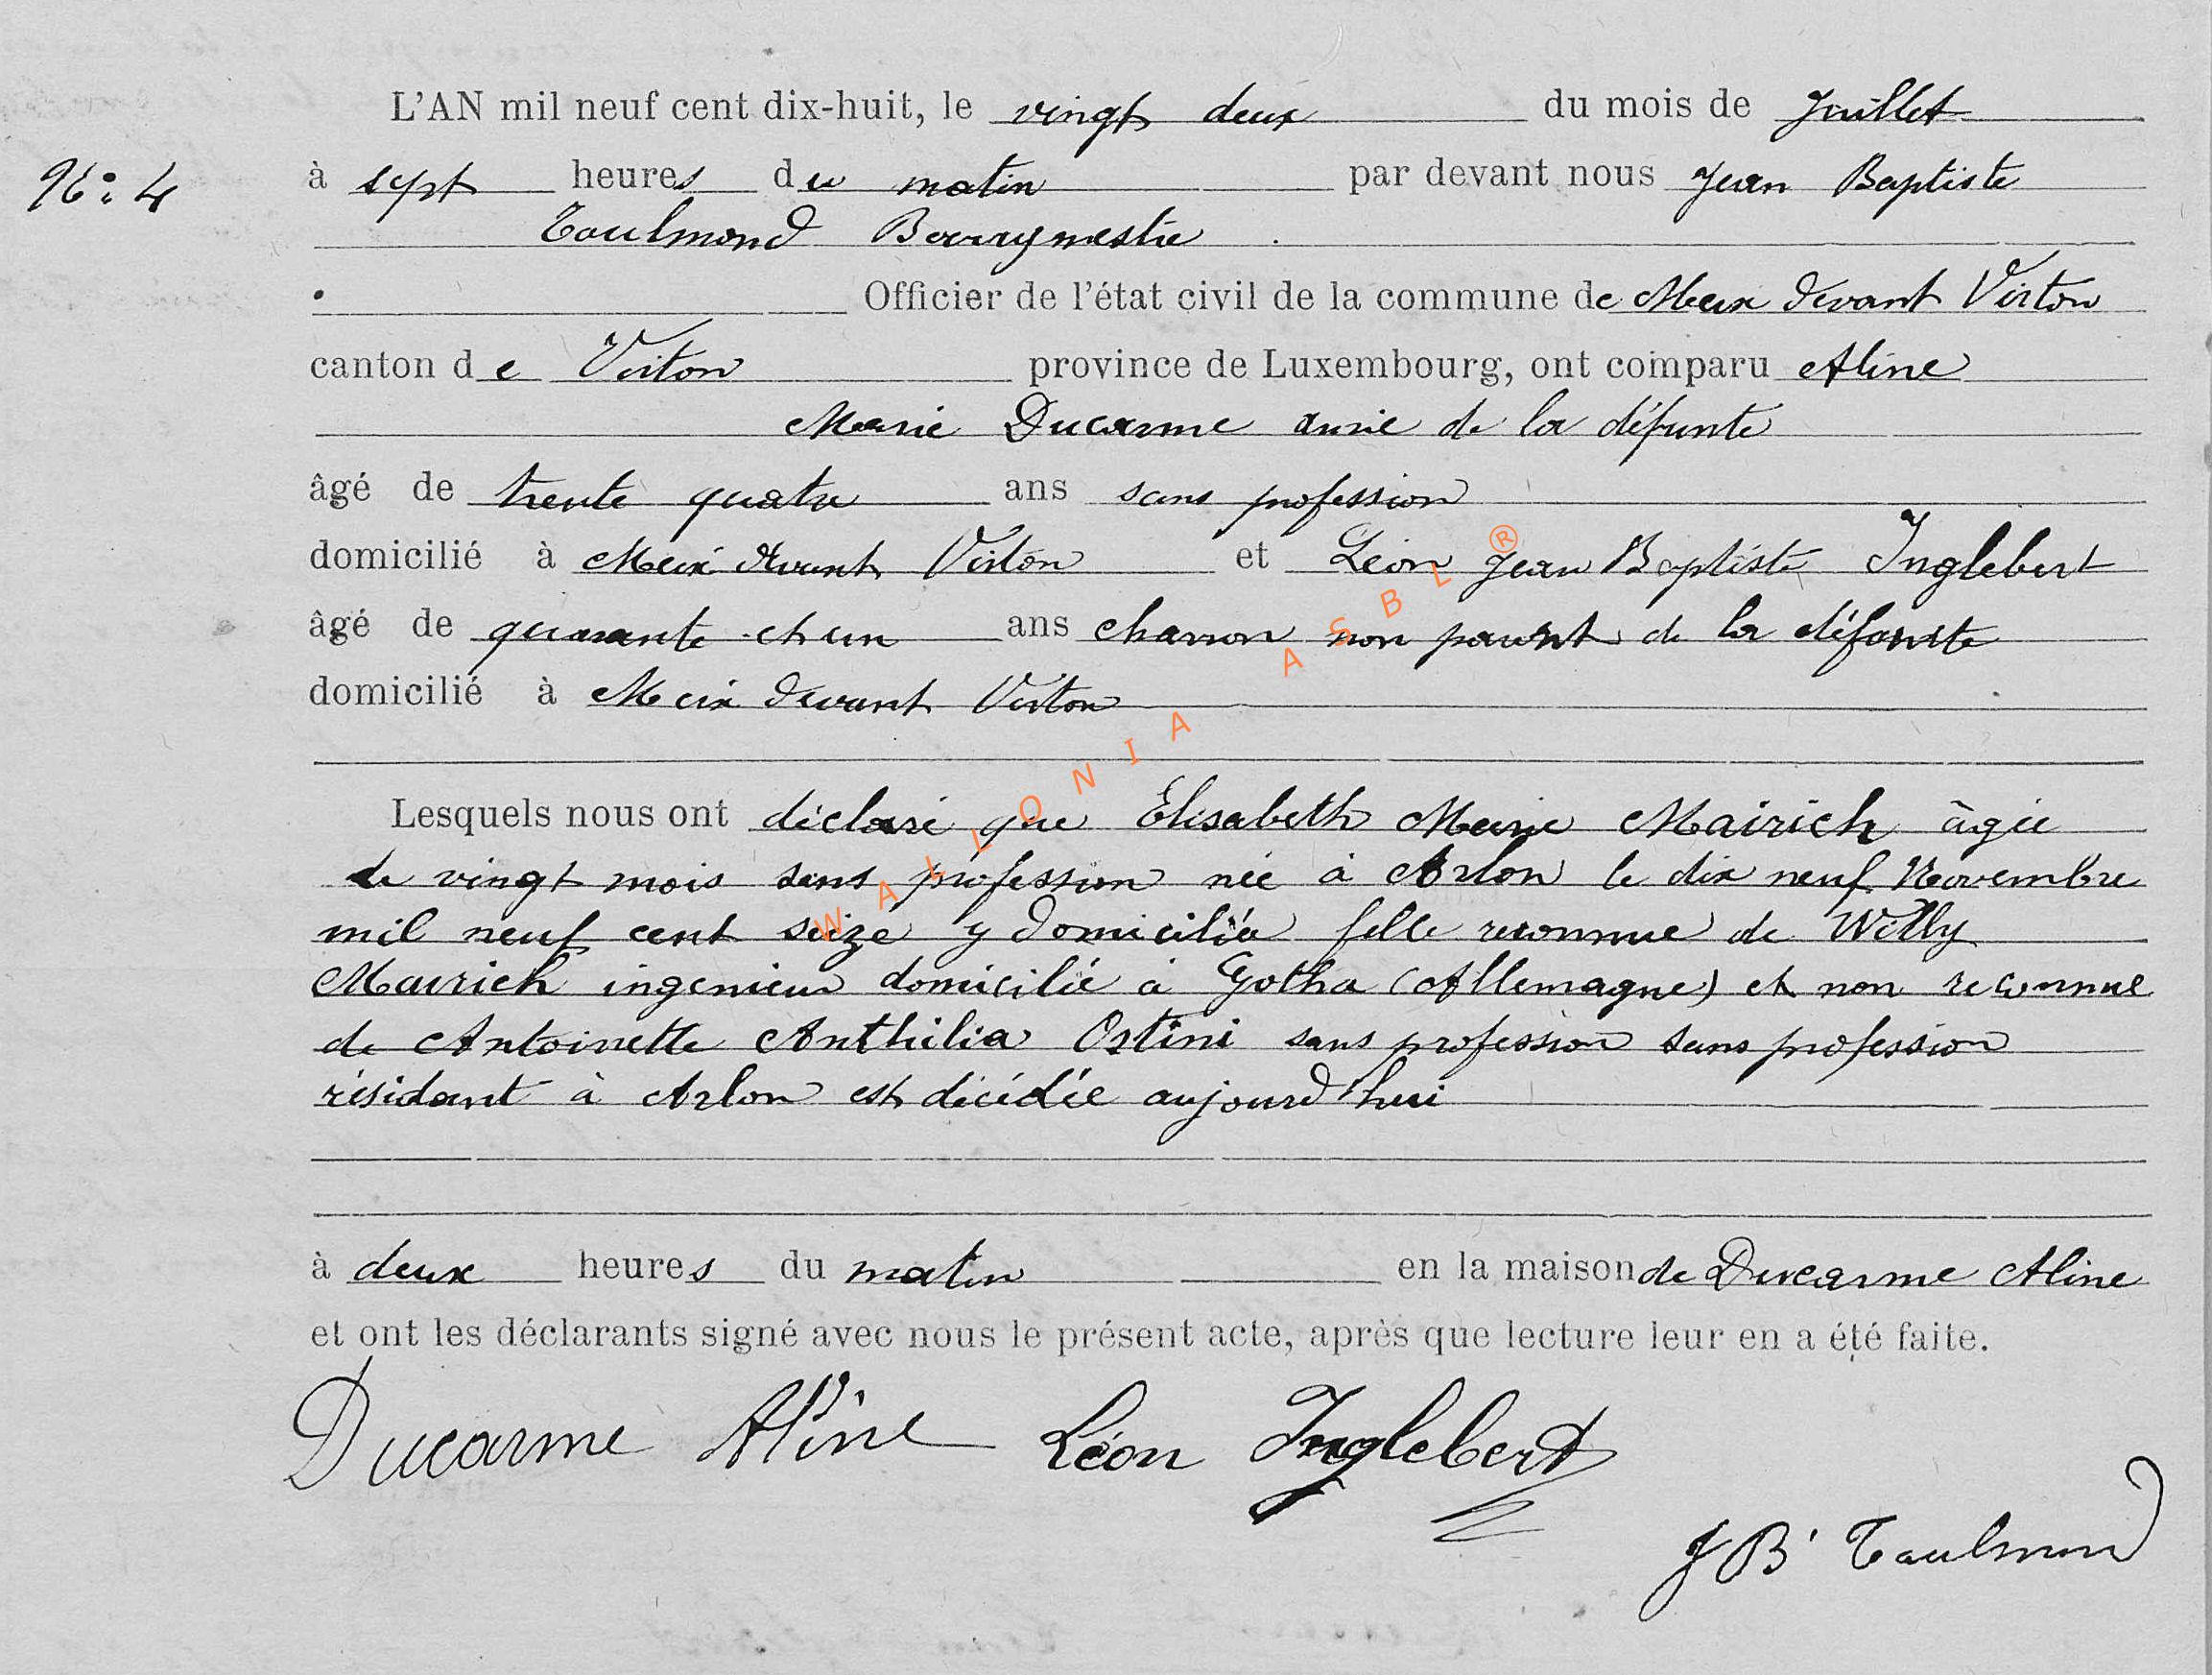 L'AN mil neuf cent dix-huit, le vingt deux du mois de Juillet
N° 4
à sept heures du matin par devant nous Jean Baptiste
Toulmond Bourgmestre
Officier de l'état civil de la commune de Meix devant Virton
canton de Virton province de Luxembourg, ont comparu Aline
Marie Ducarme amie de la défunte
âgé de trente quatre ans sans profession
domicilié à Meix devant Virton et Léon Jean Baptiste Inglebert
âgé de quarante et un ans charron non parent de la défunte
domicilié à Meix devant Virton
Lesquels nous ont déclaré que Elisabeth Marie Mairich âgée
de vingt mois sans profession née à Arlon le dix neuf Novembre
mil neuf cent seize y domiciliée fille reconnue de Willy
Mairich ingenieur domicilié à Gotha (Allemagne) et non reconnue
de Antoinette Anthilia Ostini sans profession sans profession
résidant à Arlon est décédée aujourd'hui
à deux heures du matin en la maison de Ducarme Aline
et ont les déclarants signé avec nous le présent acte, après que lecture leur en a été faite.
Ducarme Aline Léon Inglebert
J B Toulmond
WALLONIA ASBL ®